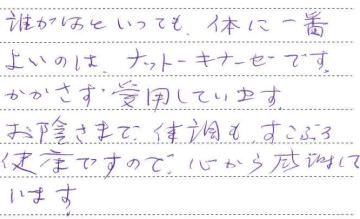 誰がなんといっても、体に一番
よいのは、ナットーキナーゼです。
かかさず愛用しています
お陰さまで、体調も、すこぶる
健康ですので、心から感謝して
います。